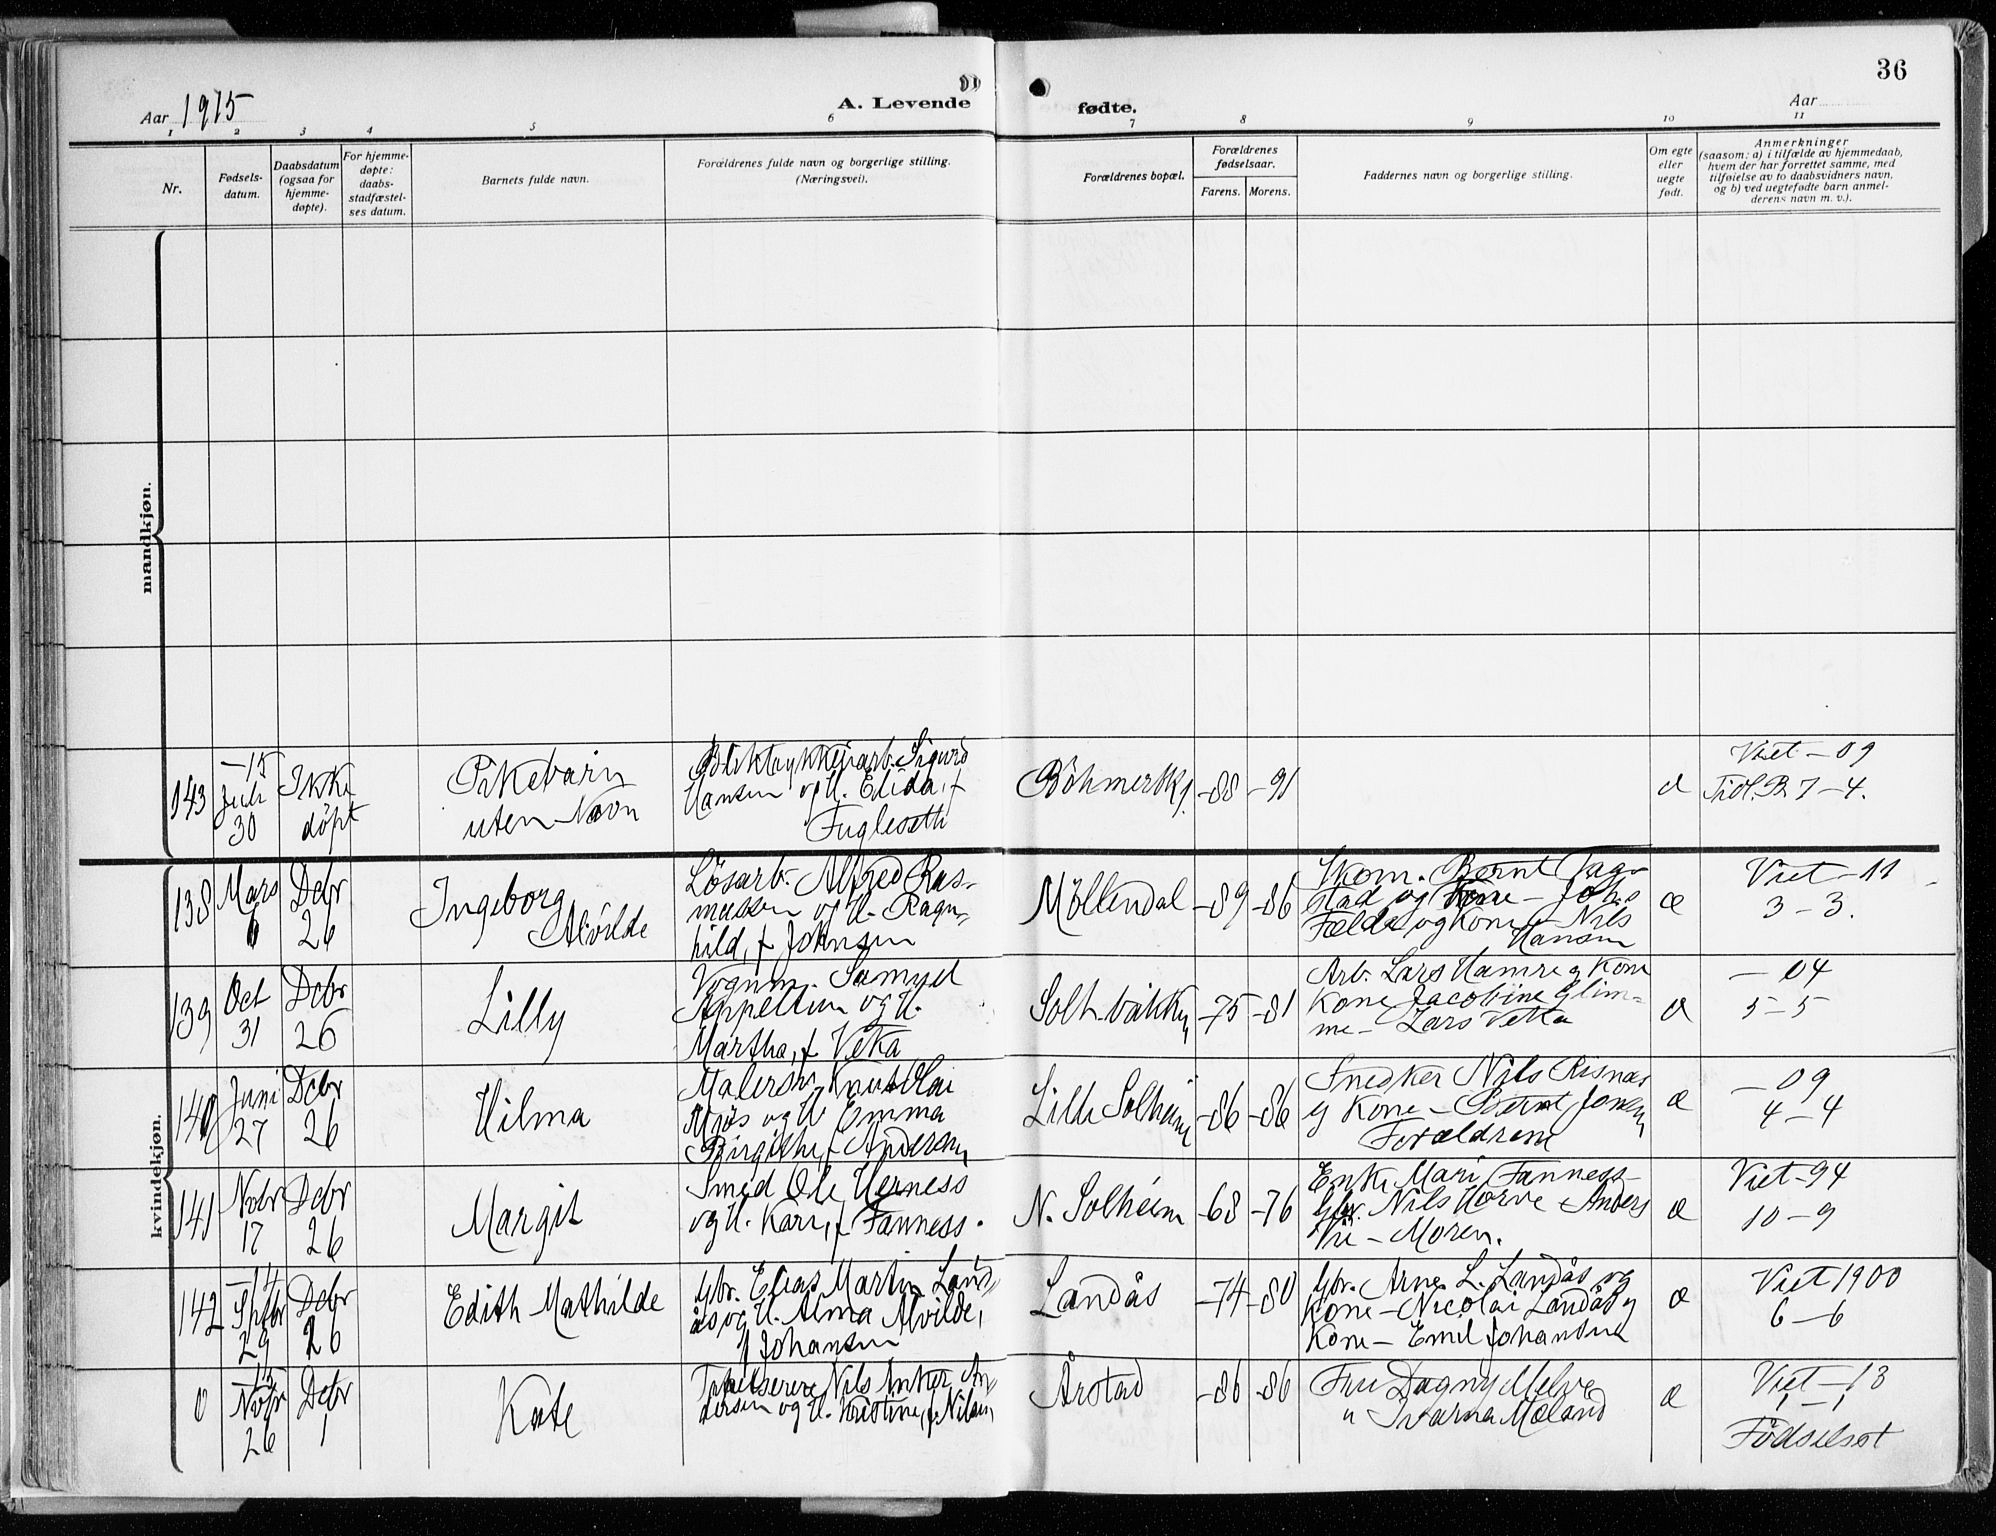 36
Aar 1915
A. Levende
fødte.
Aar
1 2 3 4 5 6 7 8 9 10 11
Nr.
Fødsels-
datum.
Daabsdatum
(ogsaa for
hjemme-
døpte).
For hjemme-
døpte:
daabs-
stadfæstel-
ses datum.
Barnets fulde navn.
Forældrenes fulde navn og borgerlige stilling.
(Næringsvei).
Forældrenes bopæl.
Forældrenes
fødselsaar.
Farens. Morens.
Faddernes navn og borgerlige stilling.
Om egte
eller
uegte
født.
Anmerkninger
(saasom: a) i tilfælde av hjemmedaab,
hvem der har forrettet samme, med
tilføielse av to daabsvidners navn,
og b) ved uegtefødte barn anmel-
derens navn m. v.).
mandkjøn.
143
-15
Juli
30
Ikke
døpt
Pikebarn
uten Navn
Sigurd
Hansen og H. Elida, f
Fugleseth
-88 -91
æ
Viet - 09
7-4.
kvindekjøn.
138
Mars
6
Dcbr
26
Ingeborg
Alvilde
Løsarb. Alfred Ras-
mussen og H. Ragn-
hild, f Johnsen
Møllendal
-89 -86
Bernt
stad og Kone - Johs
og Kone - Nils
Hansen
æ
Viet - 11
3-3.
139
Oct
31
Dcbr
26
Lilly
Vognm. Samuel
og H.
Martha, f Veka
-75 -81
Arb. Lars Hamre og Kone
Kone Jacobine Glim-
me - Lars
æ
- 04
5-5
140
Juni
27
Dcbr
26
Hilma
Malersv. Knut Olai
Mjøs og H Emma
Birgithe, f Andersen
Lille Solheim
-86 -86
Snedker Nils Risnes
og Kone - Bernt Jonsen
Forældrene
æ
- 09
4-4
141
Nvbr
17
Dcbr
26
Margit
Smed Ole Herness
og H. Kari, f Fanness.
N. Solheim
-68 -76
Enke Mari Fanness
Gbr. Nils Horve - Anders
- Moren.
æ
Viet - 94
10-9
142
-14
Spbr
29
Dcbr
26
Edith Mathilde
Gbr. Elias Martin Land-
ås og H. Alma Alvilde,
f Johansen
Landås
-74 -80
Gbr. Arne L. Landås og
Kone - Nicolai Landås og
Kone - Emil Johansen
æ
Viet 1900
6-6
0
-15
Nvbr
26
Dcbr
1
Kate
Tapetserer Nils Anker An-
dersen og H. Kristine, f. Nilsen
Årstad
-86 -86
Fru Dagny Melve
" Ivarna Mæland
æ
Viet - 13
1-1
Fødselsat